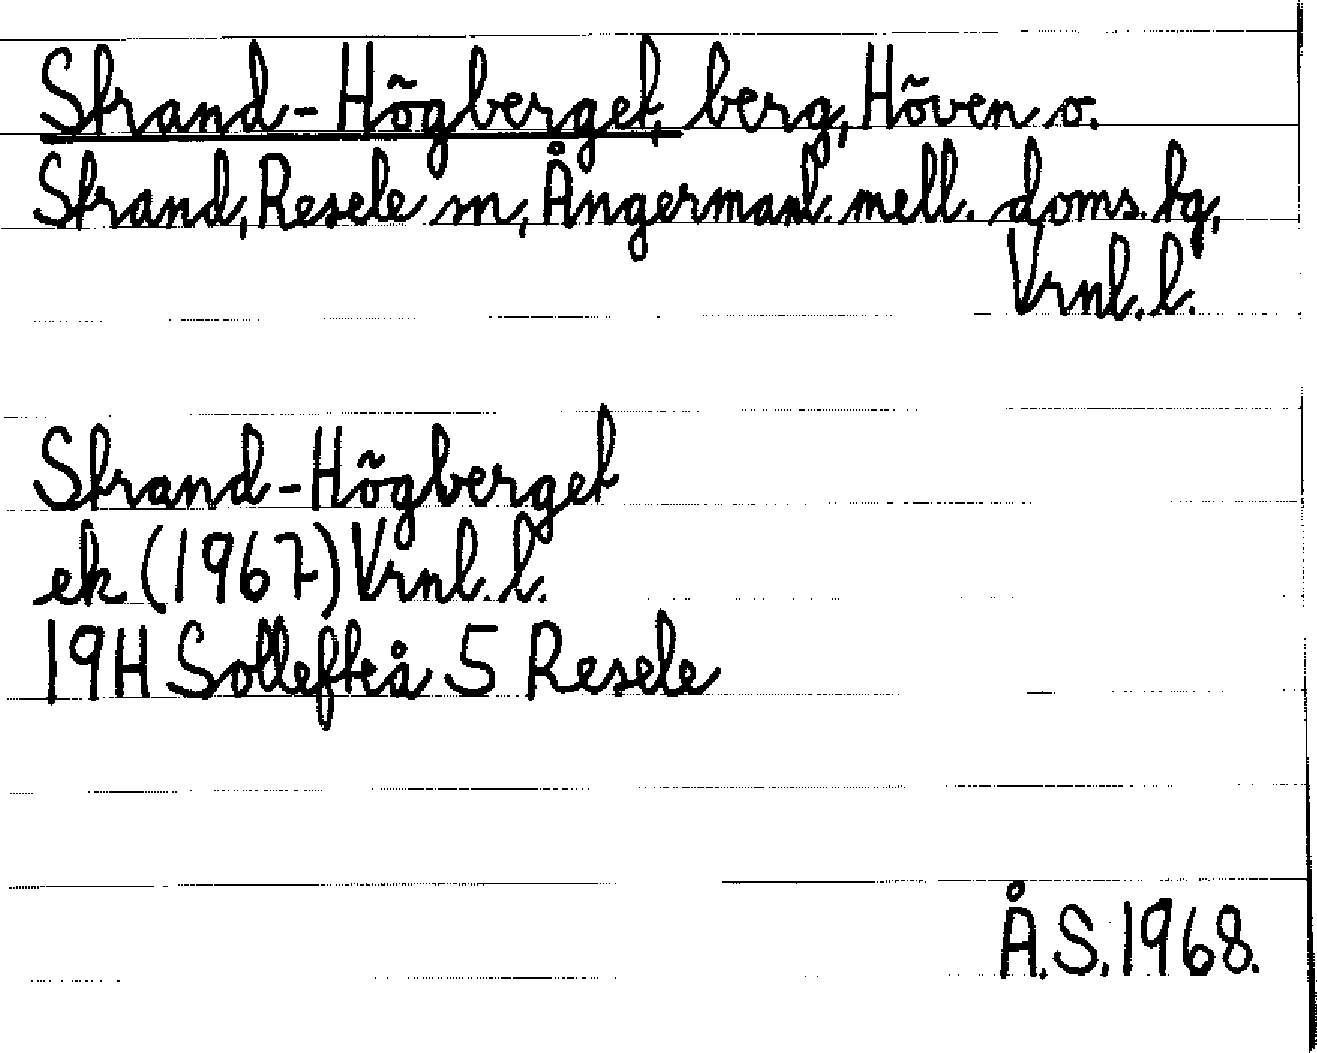 Strand-Högberget, berg, Höven o.
Strand, Resele sn, Ångermanl. mell. doms. tg,
Vrnl. l.
Strand-Högberget
ek (1967) Vrnl. l.
19H Sollefteå 5 Resele
Å.S. 1968.